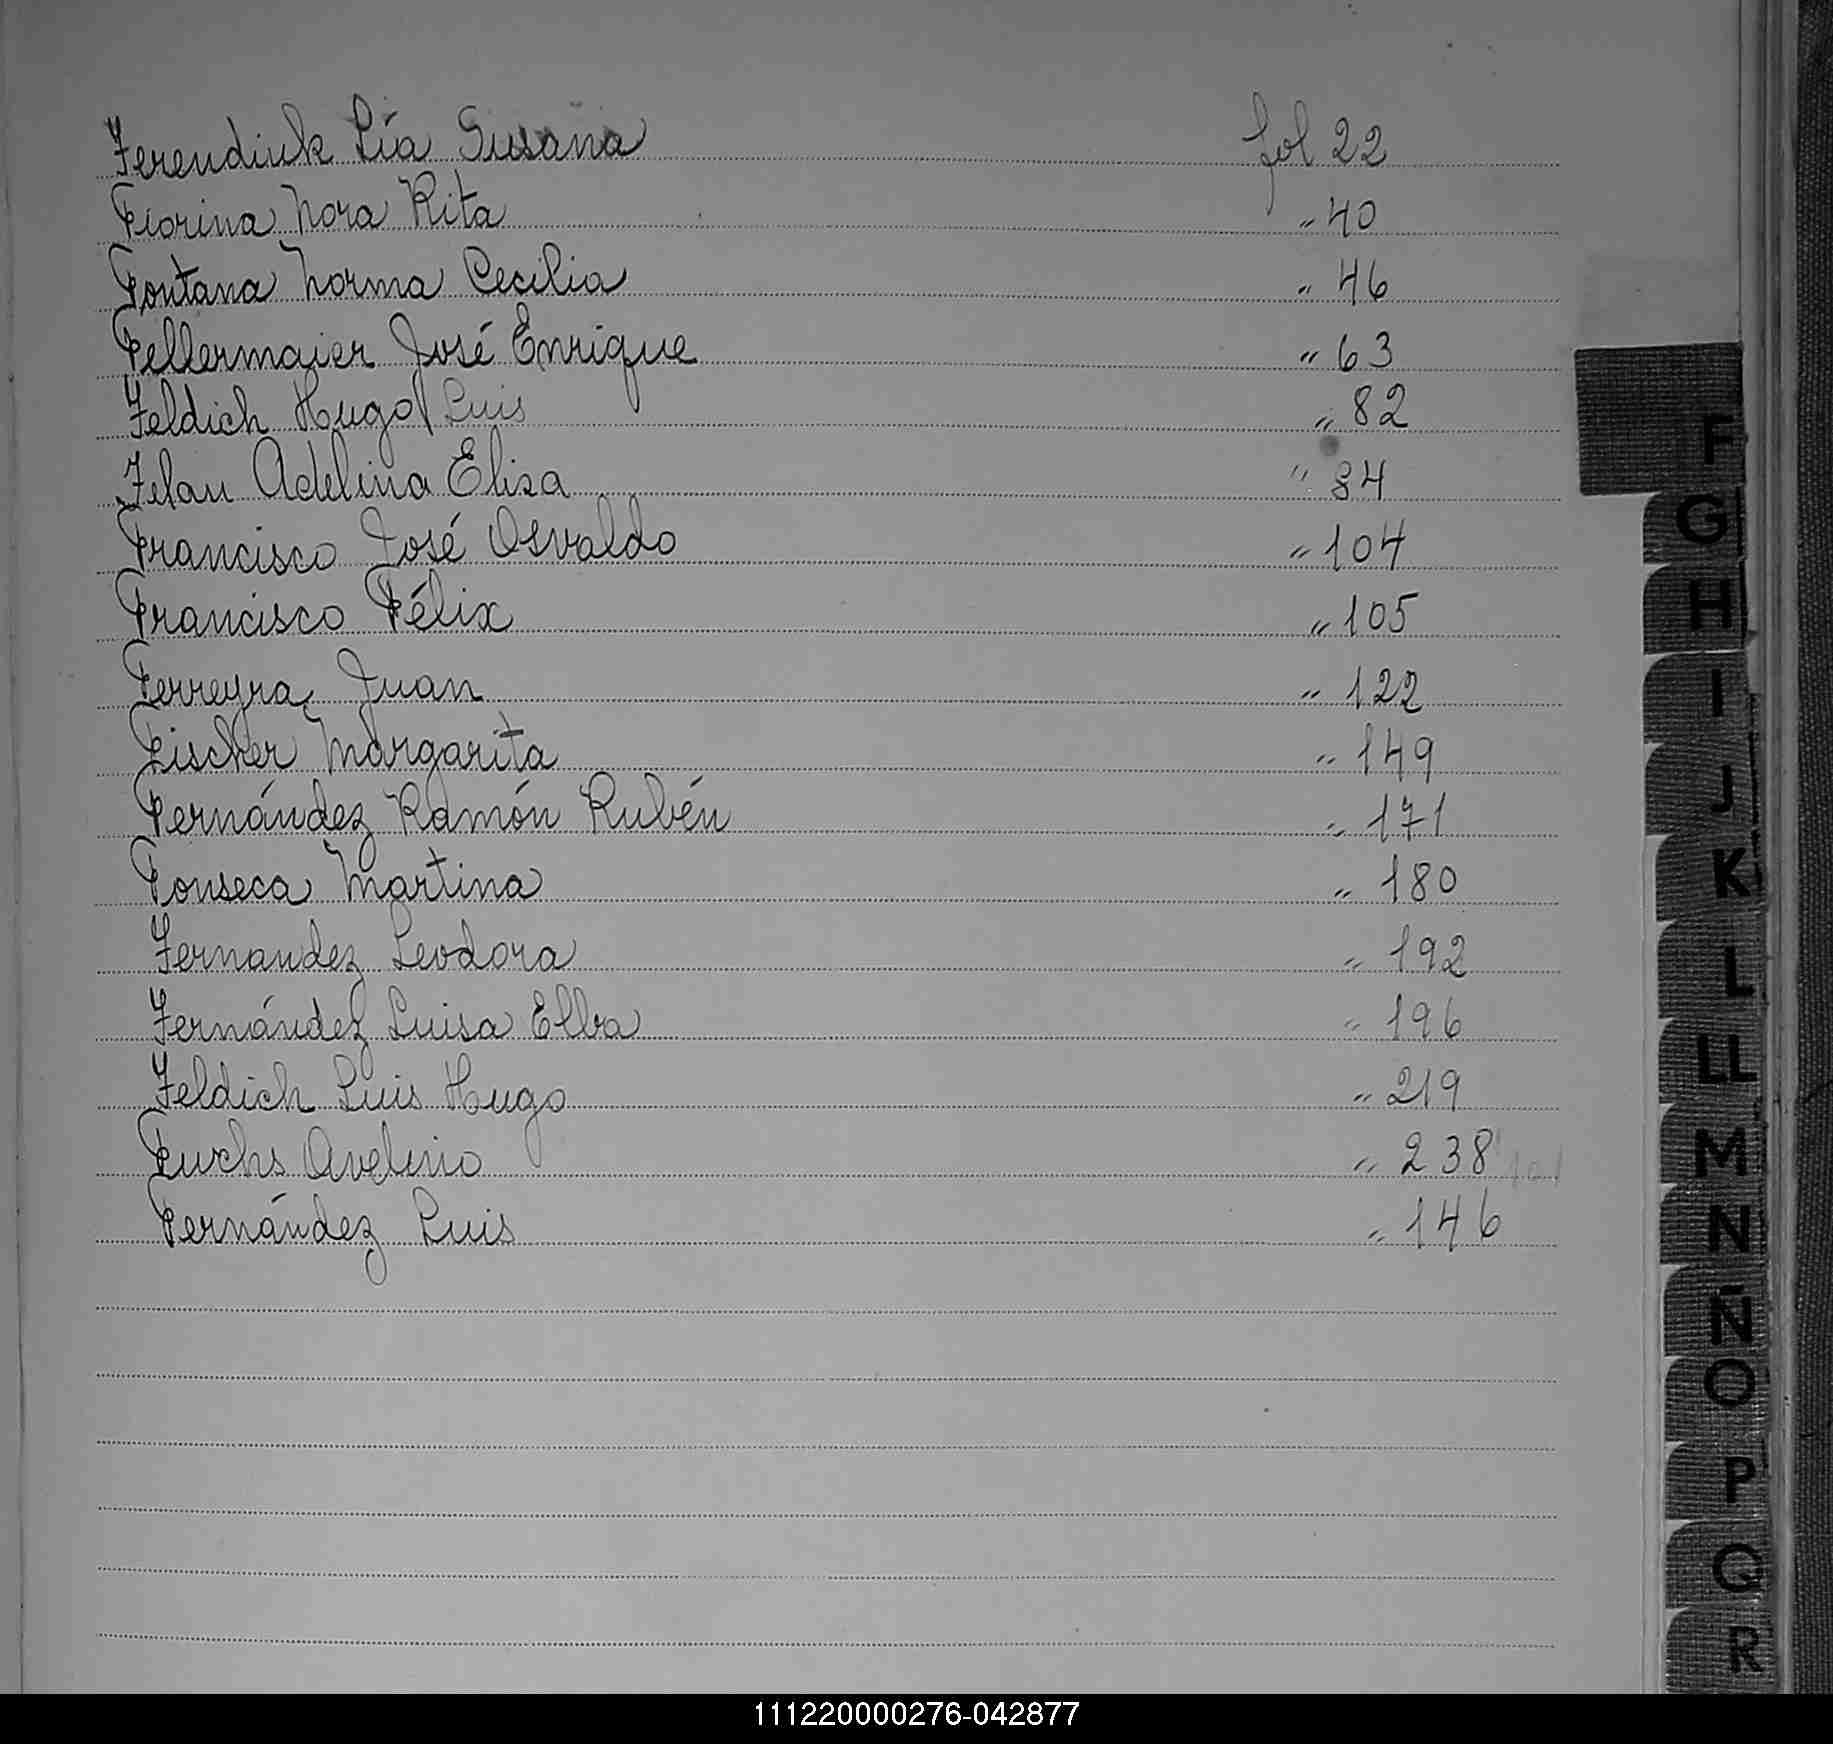 Ferendiuk Lía Susana fol 22
Fiorina Nora Rita " 40
Fontana Norma Cecilia " 46
Fellermaier José Enrique " 63
Feldich Hugo Luis " 82
Felau Adelina Elisa " 84
Francisco José Osvaldo " 104
Francisco Félix " 105
Ferreyra, Juan " 122
Fischer Margarita " 149
Fernández Ramón Rubén " 171
Fonseca Martina " 180
Fernandez Leodora " 192
Fernández Luisa Elba " 196
Feldich Luis Hugo " 219
Fuchs Avelino " 238
Fernández Luis " 146
F
G
H
I
J
K
L
LL
M
N
Ñ
O
P
Q
R
111220000276-042877